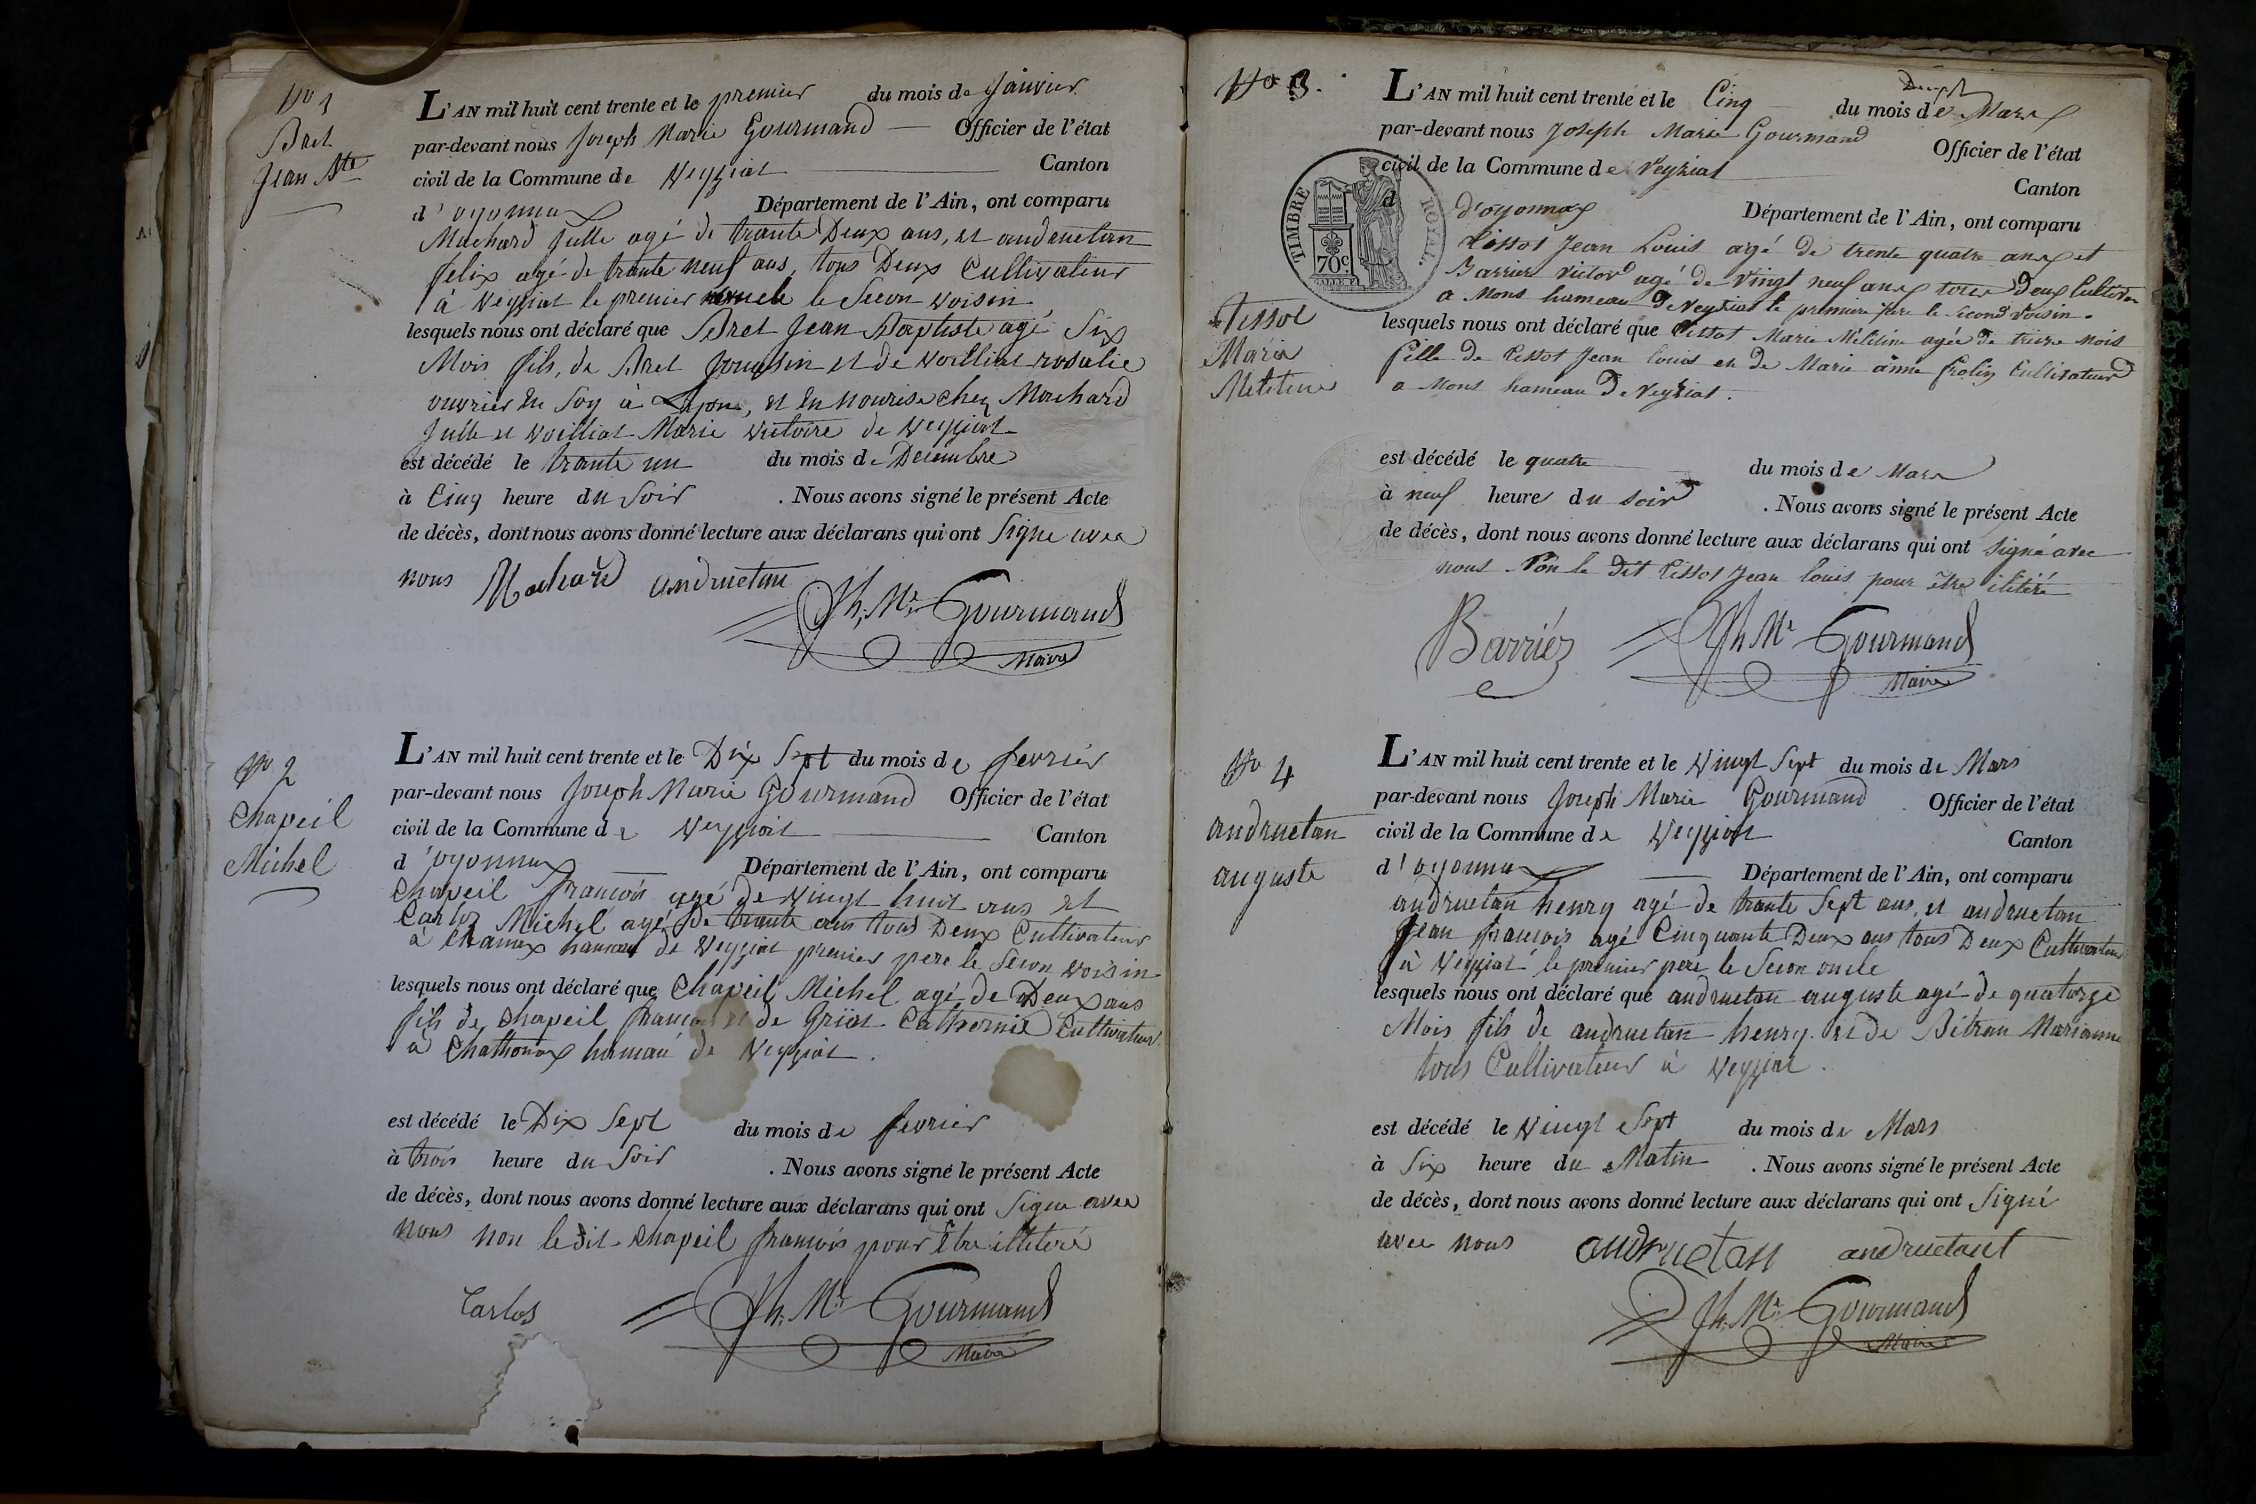 No 1
Bret
Jean Bte
L'AN mil huit cent trente et le premier du mois de Janvier
par-devant nous Joseph Marie Gourmand Officier de l'état
civil de la Commune de Veyziat Canton
d'oyonnax Département de l'Ain, ont comparu
Machard Julle agé de trante Deux ans, et andruetan
felix agé de trante neuf ans, tous Deux Cultivateur
à Veyziat le premier le Secon voisin
lesquels nous ont déclaré que Bret Jean Baptiste agé Six
Mois fils, de Bret et de voilliat rosalie
ouvrier en Soy à Lyon, et en nourise chez Machard
Julle et Voilliat Marie victoire de Veyziat
est décédé le trante un du mois de Décembre
à Cinq heure du Soir . Nous avons signé le présent Acte
de décès, dont nous avons donné lecture aux déclarans qui ont Signe avec
nous Machard andruetan
Jh. Mie Gourmand
Maire
No 2
Chapeil
Michel
L'AN mil huit cent trente et le Dix Sept du mois de fevrier
par-devant nous Joseph Marie Gourmand Officier de l'état
civil de la Commune de Veyziat Canton
d'oyonnax Département de l'Ain, ont comparu
Chapeil francois agé de vingt huit ans et
Carlos Michel agé de trante ans tous Deux Cultivateur
à hameau de Veyziat premier pere le Secon voisin
lesquels nous ont déclaré que Chapeil Michel agé de Deux ans
fils de Chapeil francois et de Cathernie Cultivateur
à Chathonax hamaü de Veyziat.
est décédé le Dix Sept du mois de fevrier
à trois heure du Soir . Nous avons signé le présent Acte
de décès, dont nous avons donné lecture aux déclarans qui ont Signe avec
nous non le dit Chapeil francois pour Etre illiteré
Carlos Jh. Mie Gourmand
Maire
No 3.
Tissot
Maria
Melitine
L'AN mil huit cent trente et le Cinq du mois de Mars
par-devant nous Joseph Marie Gourmand Officier de l'état
civil de la Commune de Veyziat Canton
d d'oyonnax Département de l'Ain, ont comparu
TIMBRE ROYAL.
70c.
Tissot Jean Louis agé de trente quatre ans et
Barrier Victor agé de vingt neuf ans tous deux Cultiv
a Mons hameau de Veyziat le premier Pere le second voisin.
lesquels nous ont déclaré que Tissot Marie Mélitine agée de treize mois
fille de Tissot Jean Louis et de Marie anne Cultivateur
a Mons hameau de Veyziat.
est décédé le quatre du mois de Mars
à neuf heure du soir . Nous avons signé le présent Acte
de décès, dont nous avons donné lecture aux déclarans qui ont signé avec
nous Non le dit Tissot Jean Louis pour être ilitéré
Barriéz Jh Mie Gourmand
Maire
No 4
andruetan
auguste
L'AN mil huit cent trente et le Vingt Sept du mois de Mars
par-devant nous Joseph Marie Gourmand Officier de l'état
civil de la Commune de Veyziat Canton
d'oyonnax Département de l'Ain, ont comparu
andruetan henry agé de trante Sept ans, et andruetan
Jean francois agé Cinquante Deux ans tous Deux Cultivateur
à Veyziat le premier pere le Secon oncle
lesquels nous ont déclaré que andruetan auguste agé de quatorze
Mois fils de andruetan henry et de Bétran Marianne
tous Cultivateur à Veyziat.
est décédé le Vingt Sept du mois de Mars
à Six heure du Matin . Nous avons signé le présent Acte
de décès, dont nous avons donné lecture aux déclarans qui ont Signé
avec nous andruetan andruetant
Jh. Mie Gourmand
Maire